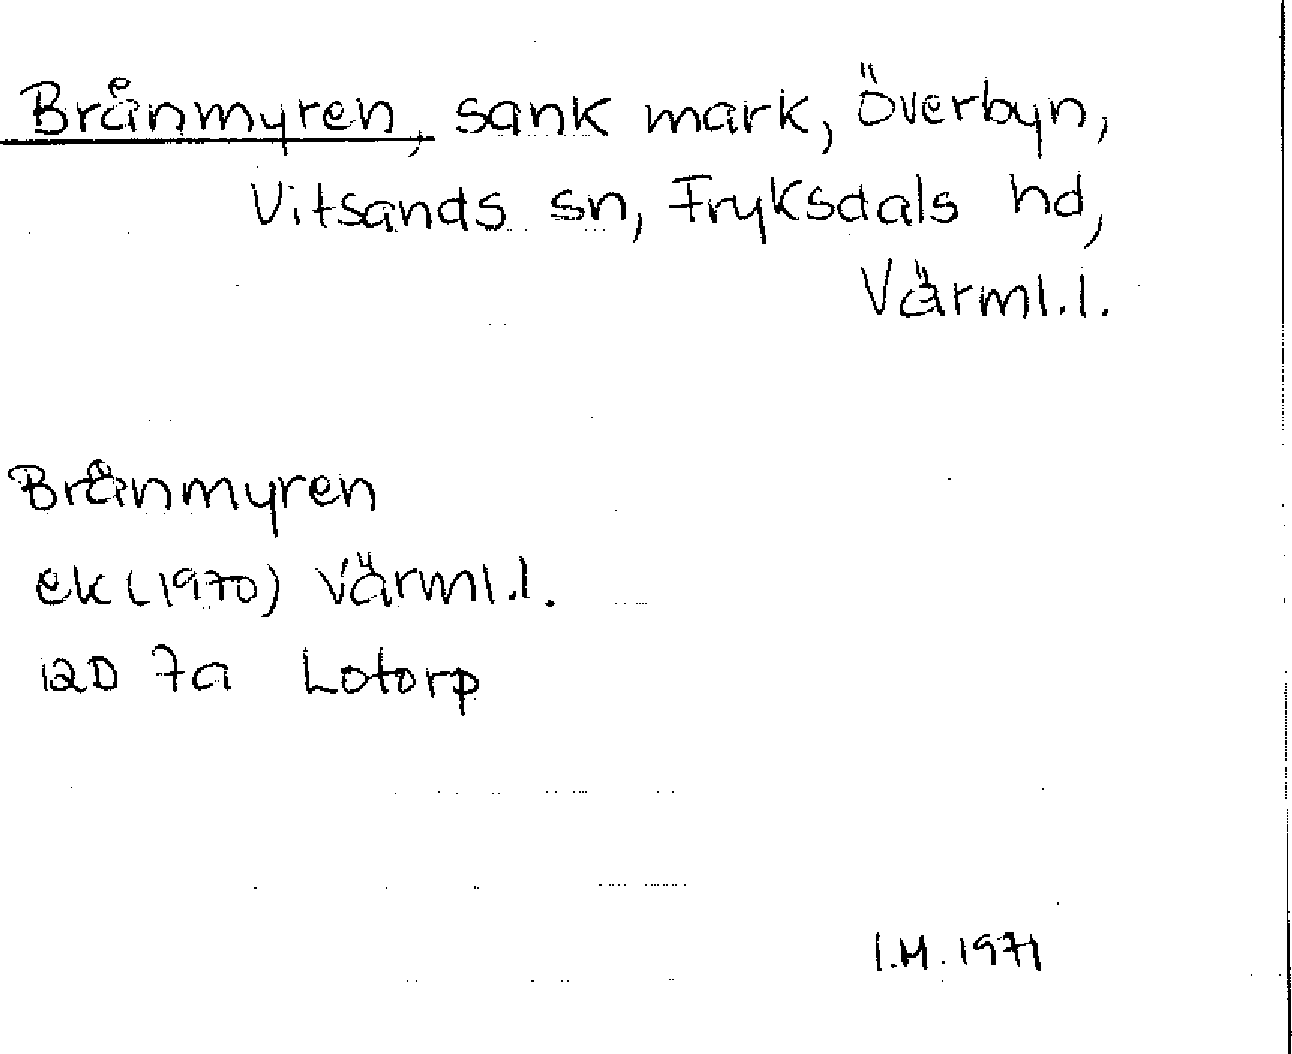 Brånmyren, sank mark, Överbyn,
Vitsands sn, Fryksdals hd,
Värml.l.
Brånmyren
ek (1970) Värml.l.
12D 7a Lotorp
I.M. 1971